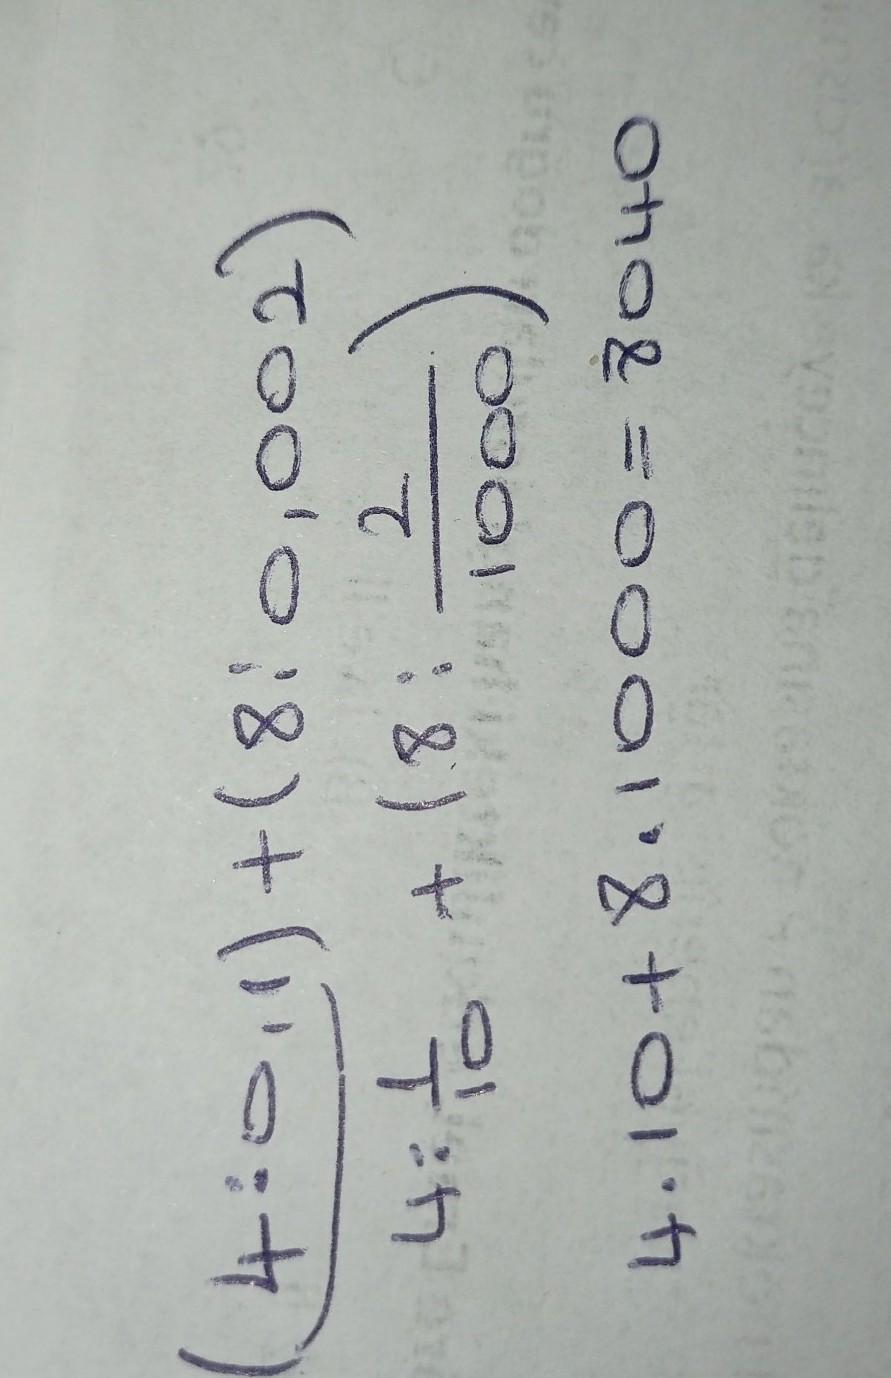 (4:0,1)+(8:0,002)
4:1/10 + (8:2/1000)
4.10+8.1000=8040